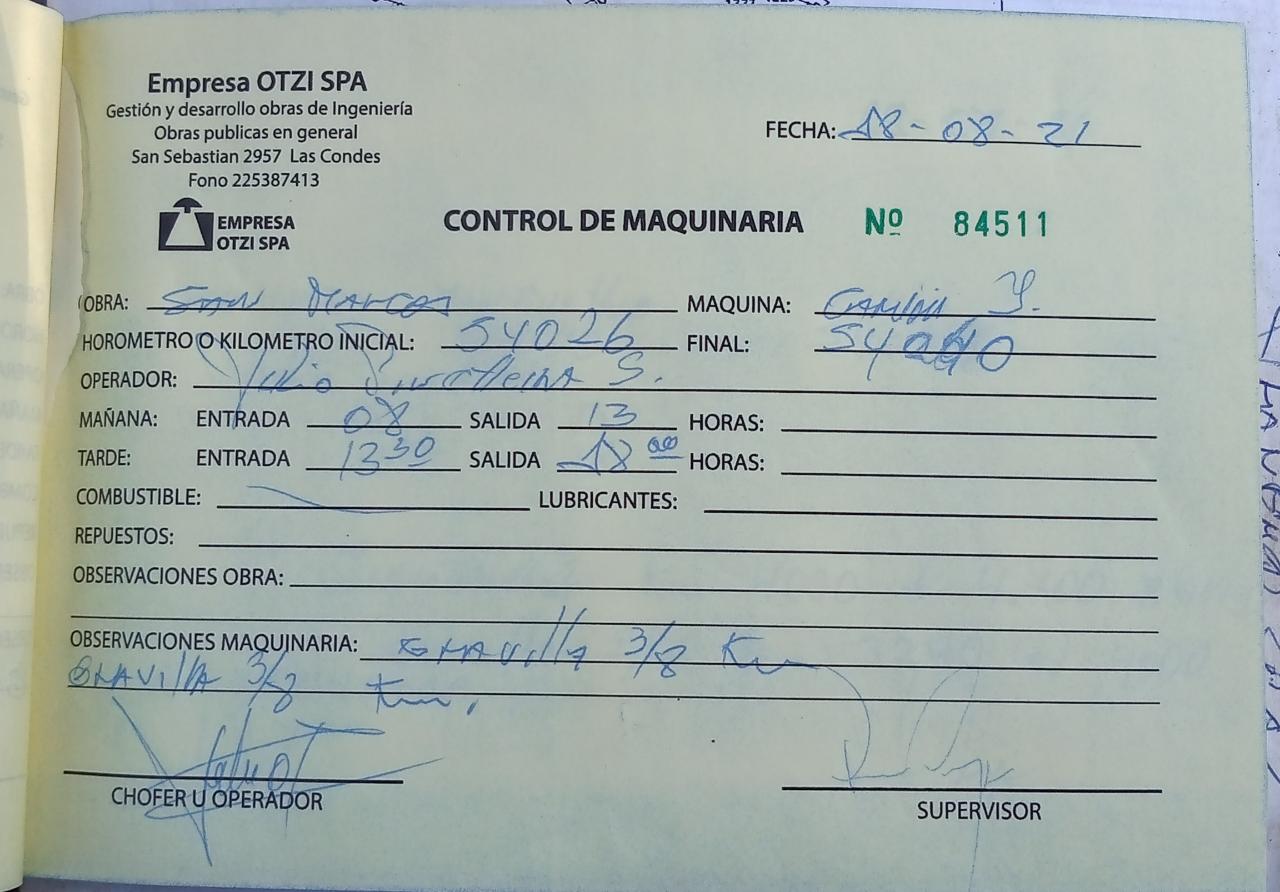 Empresa OTZI SPA
Gestión y desarrollo obras de Ingeniería
Obras publicas en general
San Sebastian 2957 Las Condes
Fono 225387413
FECHA: 18-08-21
EMPRESA
OTZI SPA
CONTROL DE MAQUINARIA Nº 84511
OBRA: SAN MARCOS MAQUINA: CAMION
HOROMETRO O KILOMETRO INICIAL: 54026 FINAL:
OPERADOR: Julio S.
MAÑANA: ENTRADA 08 SALIDA 13 HORAS:
TARDE: ENTRADA 13 30 SALIDA 18 00 HORAS:
COMBUSTIBLE: LUBRICANTES:
REPUESTOS:
OBSERVACIONES OBRA:
OBSERVACIONES MAQUINARIA: GRAVILLA 3/8
GRAVILLA 3/8
CHOFER U OPERADOR
SUPERVISOR